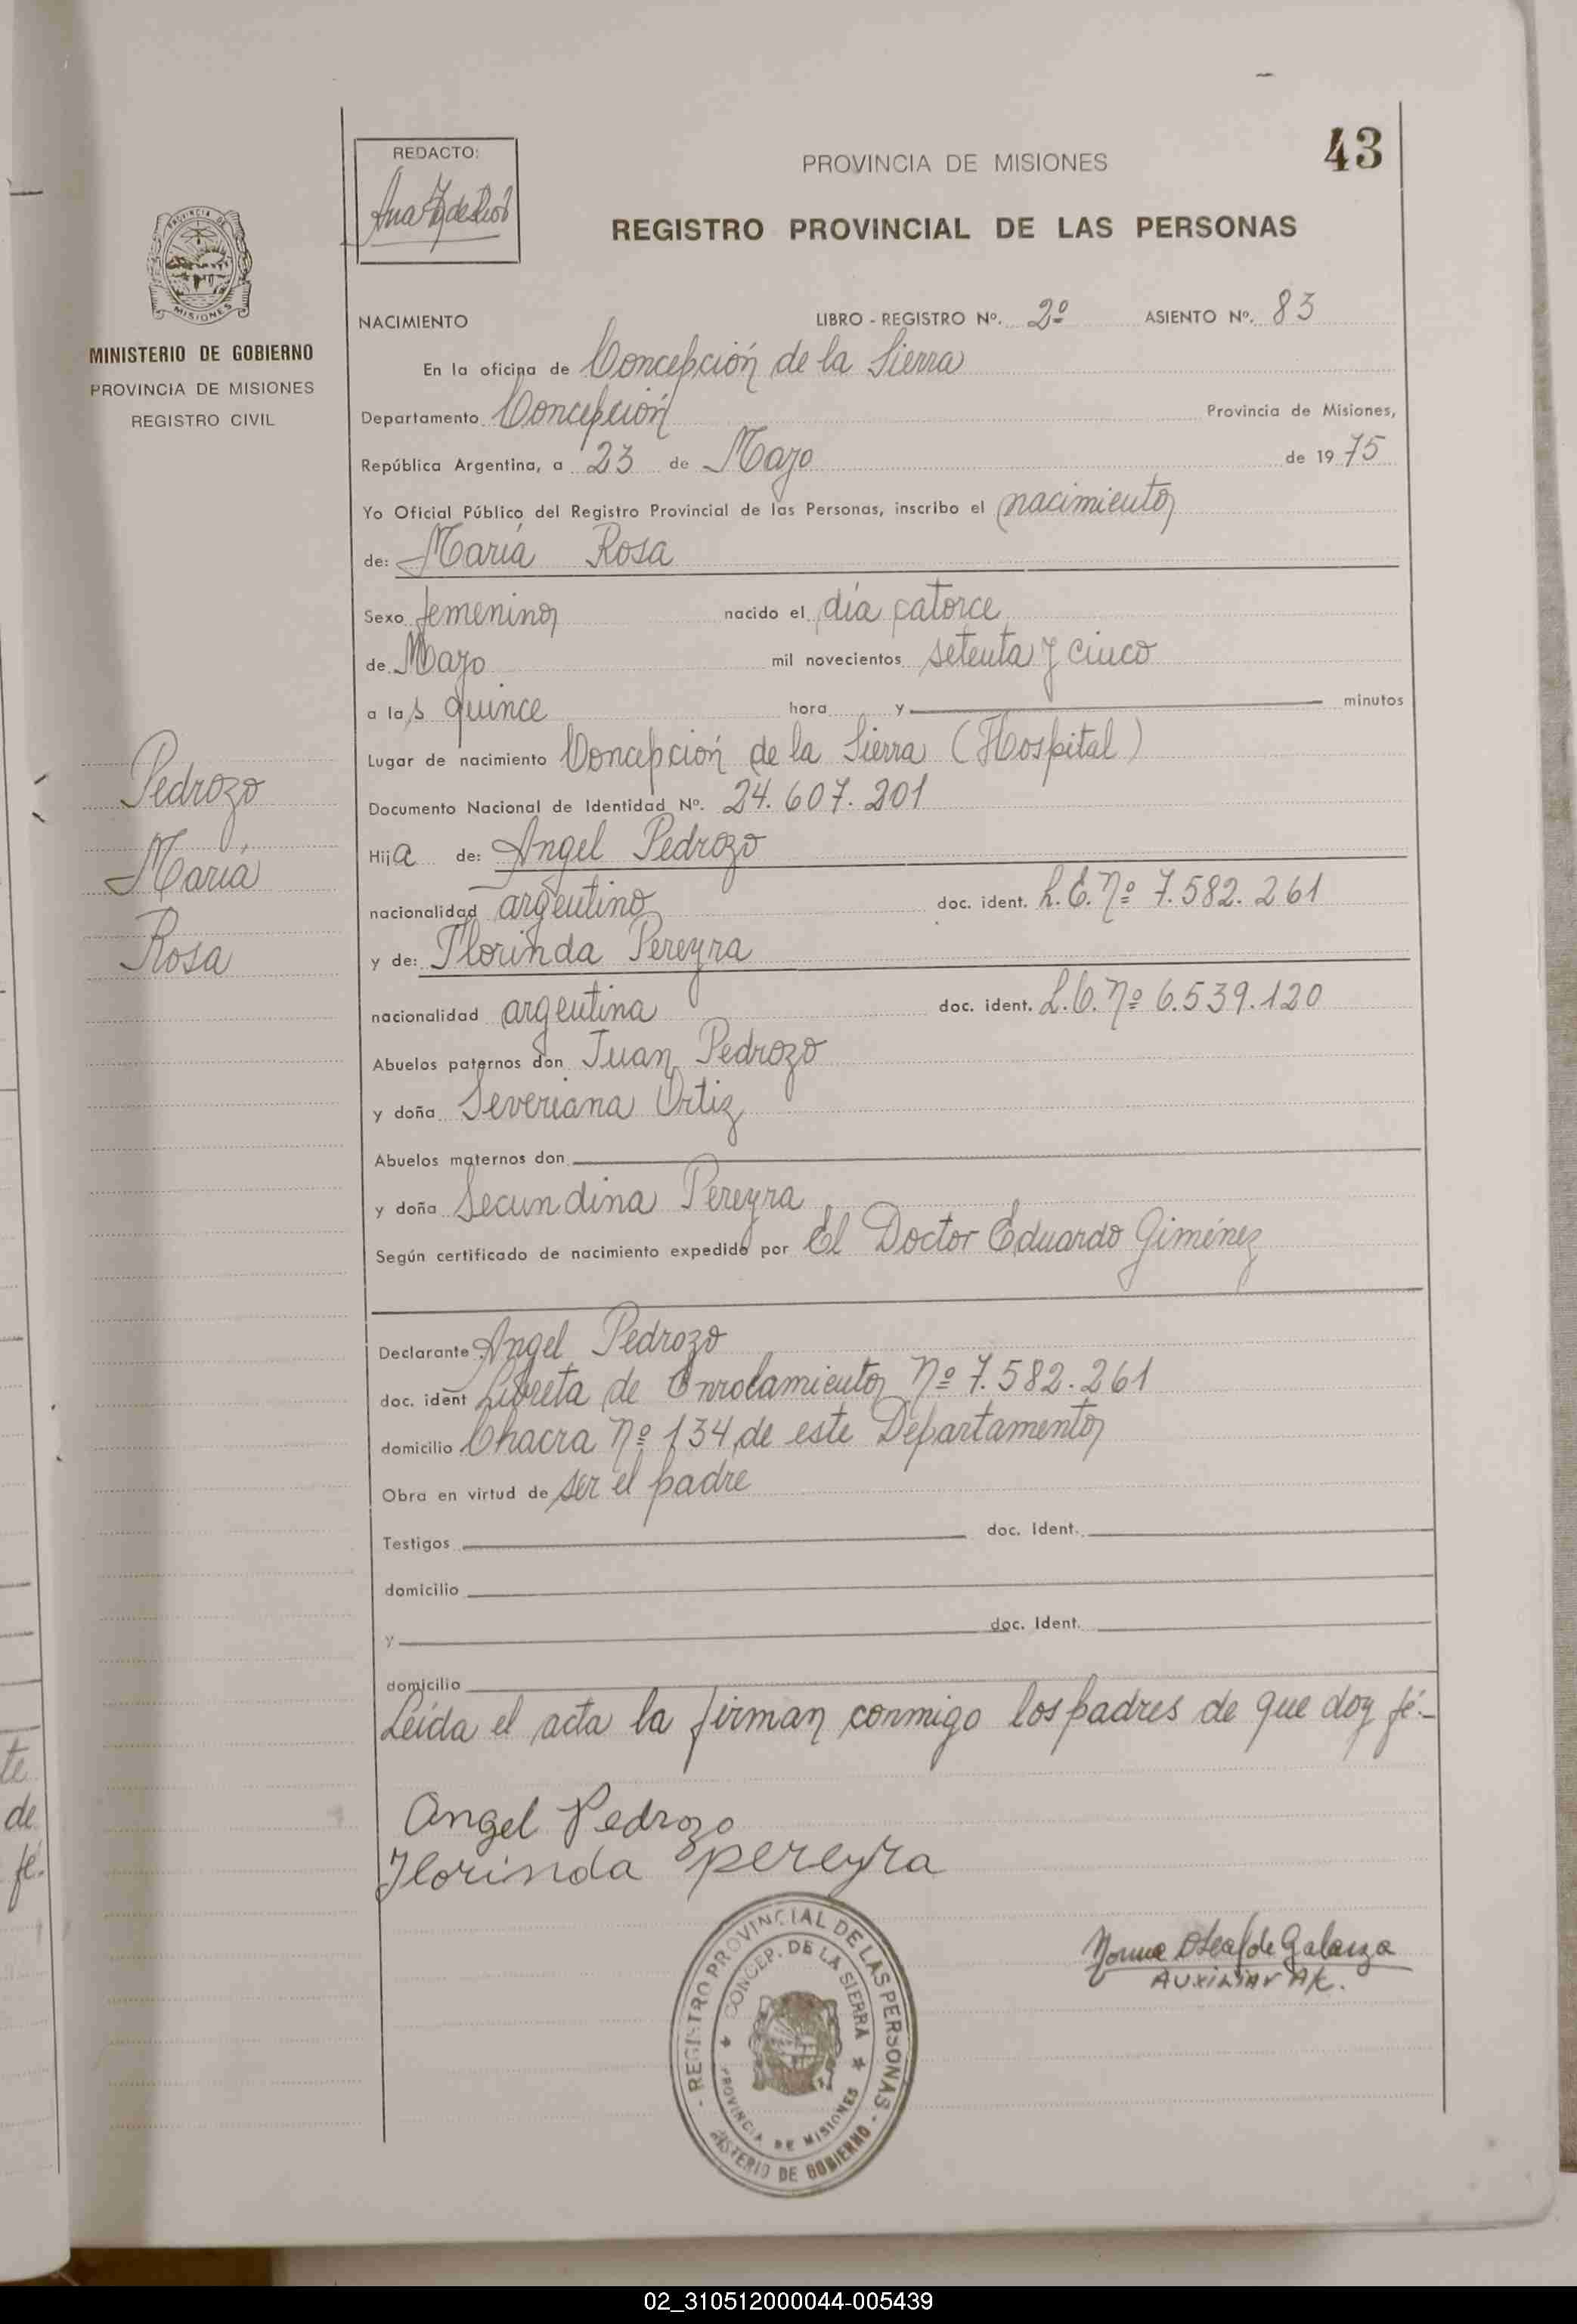 43
REDACTO:
PROVINCIA DE MISIONES
REGISTRO PROVINCIAL DE LAS PERSONAS
MINISTERIO DE GOBIERNO
PROVINCIA DE MISIONES
REGISTRO CIVIL
NACIMIENTO LIBRO - REGISTRO Nº. 2º ASIENTO Nº. 83
En la oficina de Concepción de la Sierra
Departamento Concepción Provincia de Misiones,
República Argentina, a 23 de Mayo de 1975
Yo Oficial Público del Registro Provincial de las Personas, inscribo el nacimiento
de: María Rosa
Sexo femenino nacido el día catorce
de Mayo mil novecientos setenta y cinco
a las quince hora y minutos
Lugar de nacimiento Concepción de la Sierra (Hospital)
Documento Nacional de Identidad Nº. 24.607.201
Pedrozo
María
Rosa
Hija de: Angel Pedrozo
nacionalidad argentino doc. ident. L.E. Nº 7.582.261
y de: Florinda Pereyra
nacionalidad argentina doc. ident. L.C. Nº 6.539.120
Abuelos paternos don Juan Pedrozo
y doña Severiana Ortiz
Abuelos maternos don
y doña Secundina Pereyra
Según certificado de nacimiento expedido por El Doctor Eduardo Giménez
Declarante Angel Pedrozo
doc. ident Libreta de Enrolamiento Nº 7.582.261
domicilio Chacra Nº 134 de este Departamento
Obra en virtud de ser el padre
Testigos doc. Ident.
domicilio
y doc. Ident.
domicilio
Leída el acta la firman conmigo los padres de que doy fé.-
Angel Pedrozo
Florinda Pereyra
Norma de Galarza
AUXILIAR
- REGISTRO PROVINCIAL DE LAS PERSONAS -
CONCEP. DE LA SIERRA
PROVINCIA DE MISIONES
DE GOBIERNO
te
de
fé.
02_310512000044-005439